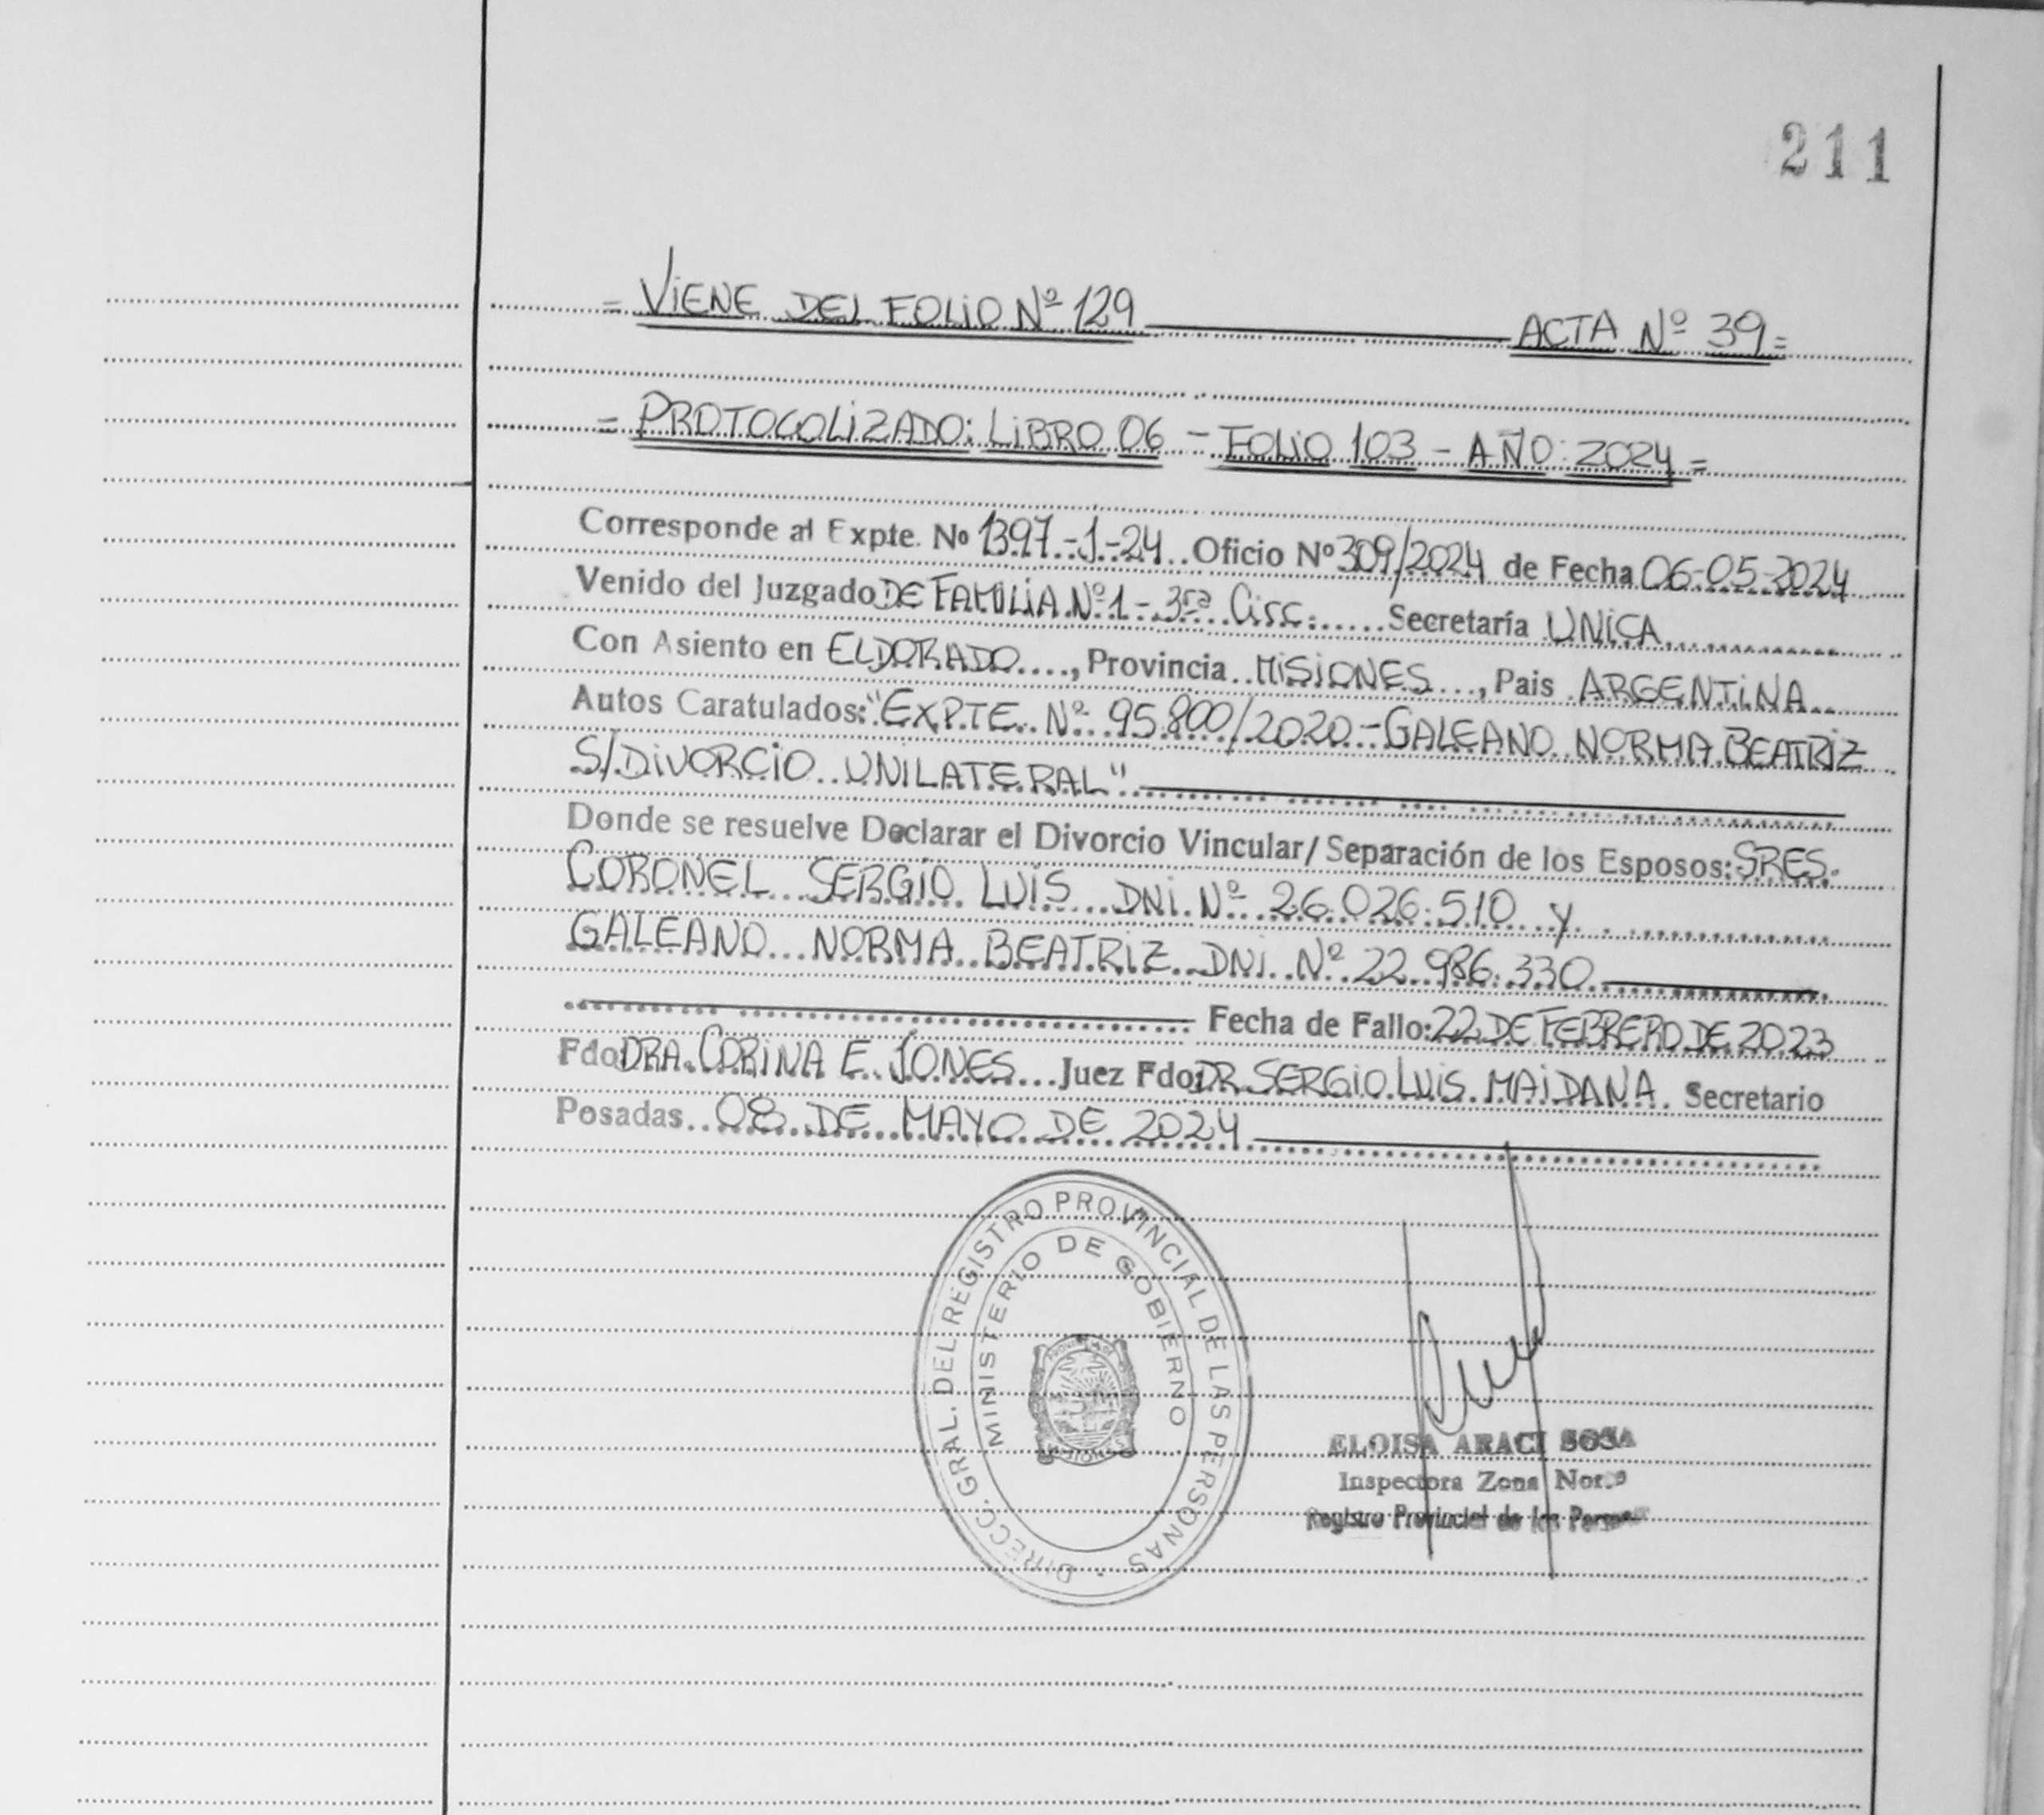 211
= VIENE DEL FOLIO Nº 129 ACTA Nº 39 =
= PROTOCOLIZADO: LIBRO 06 - FOLIO 103 - AÑO: 2024 =
Corresponde al Expte. Nº 1397-1-24 Oficio Nº 309/2024 de Fecha 06-05-2024
Venido del Juzgado DE FAMILIA Nº 1 - 3ra Circ. Secretaría UNICA
Con Asiento en ELDORADO, Provincia MISIONES, Pais ARGENTINA
Autos Caratulados: "EXPTE. Nº 95.800/2020 - GALEANO NORMA BEATRIZ
S/DIVORCIO UNILATERAL"
Donde se resuelve Declarar el Divorcio Vincular/Separación de los Esposos: SRES.
CORONEL SERGIO LUIS DNI Nº 26.026.510 y
GALEANO NORMA BEATRIZ DNI Nº 22.986.330
Fecha de Fallo: 22 DE FEBRERO DE 2023
Fdo DRA. CORINA E. JONES Juez Fdo: DR. SERGIO LUIS MAIDANA. Secretario
Posadas 08 DE MAYO DE 2024
DIRECC. GRAL. DEL REGISTRO PROVINCIAL DE LAS PERSONAS
MINISTERIO DE GOBIERNO
PROVINCIA DE
MISIONES
ELOISA ARACI SOSA
Inspectora Zona Norte
Registro Provincial de las Personas